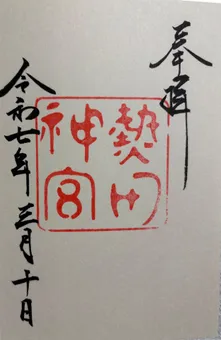 奉拝
熱田
神宮
令和七年三月十日